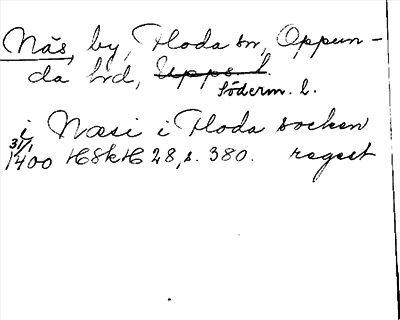 Näs, by, Floda sn, Oppun-
da hd, Upps. l.
Söderm. l.
i Næsi i Floda socken
31/1 1400 HSkH 28, s. 380. regest